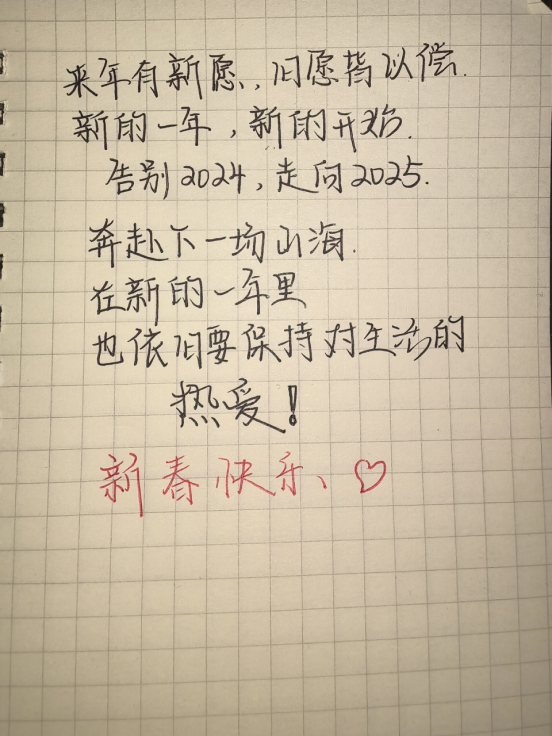 来年有新愿，旧愿皆以偿.
新的一年，新的开始.
告别2024，走向2025.
奔赴下一场山海.
在新的一年里
也依旧要保持对生活的
热爱！
新春快乐、♡